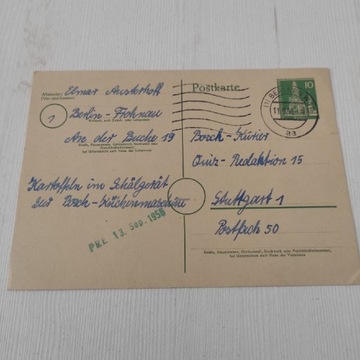 Absender:
Elmar Austerhoff
Berlin-Frohnau
An der Buche 19
Straße, Hausnummer, Gebäudeteil, Stockwerk oder Postschließfachnummer
bei Untermietern auch Name des Vermieters
Kartoffeln im Schälgerät
der Bosch-Küchenmaschine
PRE 13. Sep. 1956
Postkarte
10
Bosch-Kurier
Quiz-Redaktion 15
Stuttgart 1
Postfach 50
Straße, Hausnummer, Gebäudeteil, Stockwerk oder Postschließfachnummer
bei Untermietern auch Name des Vermieters